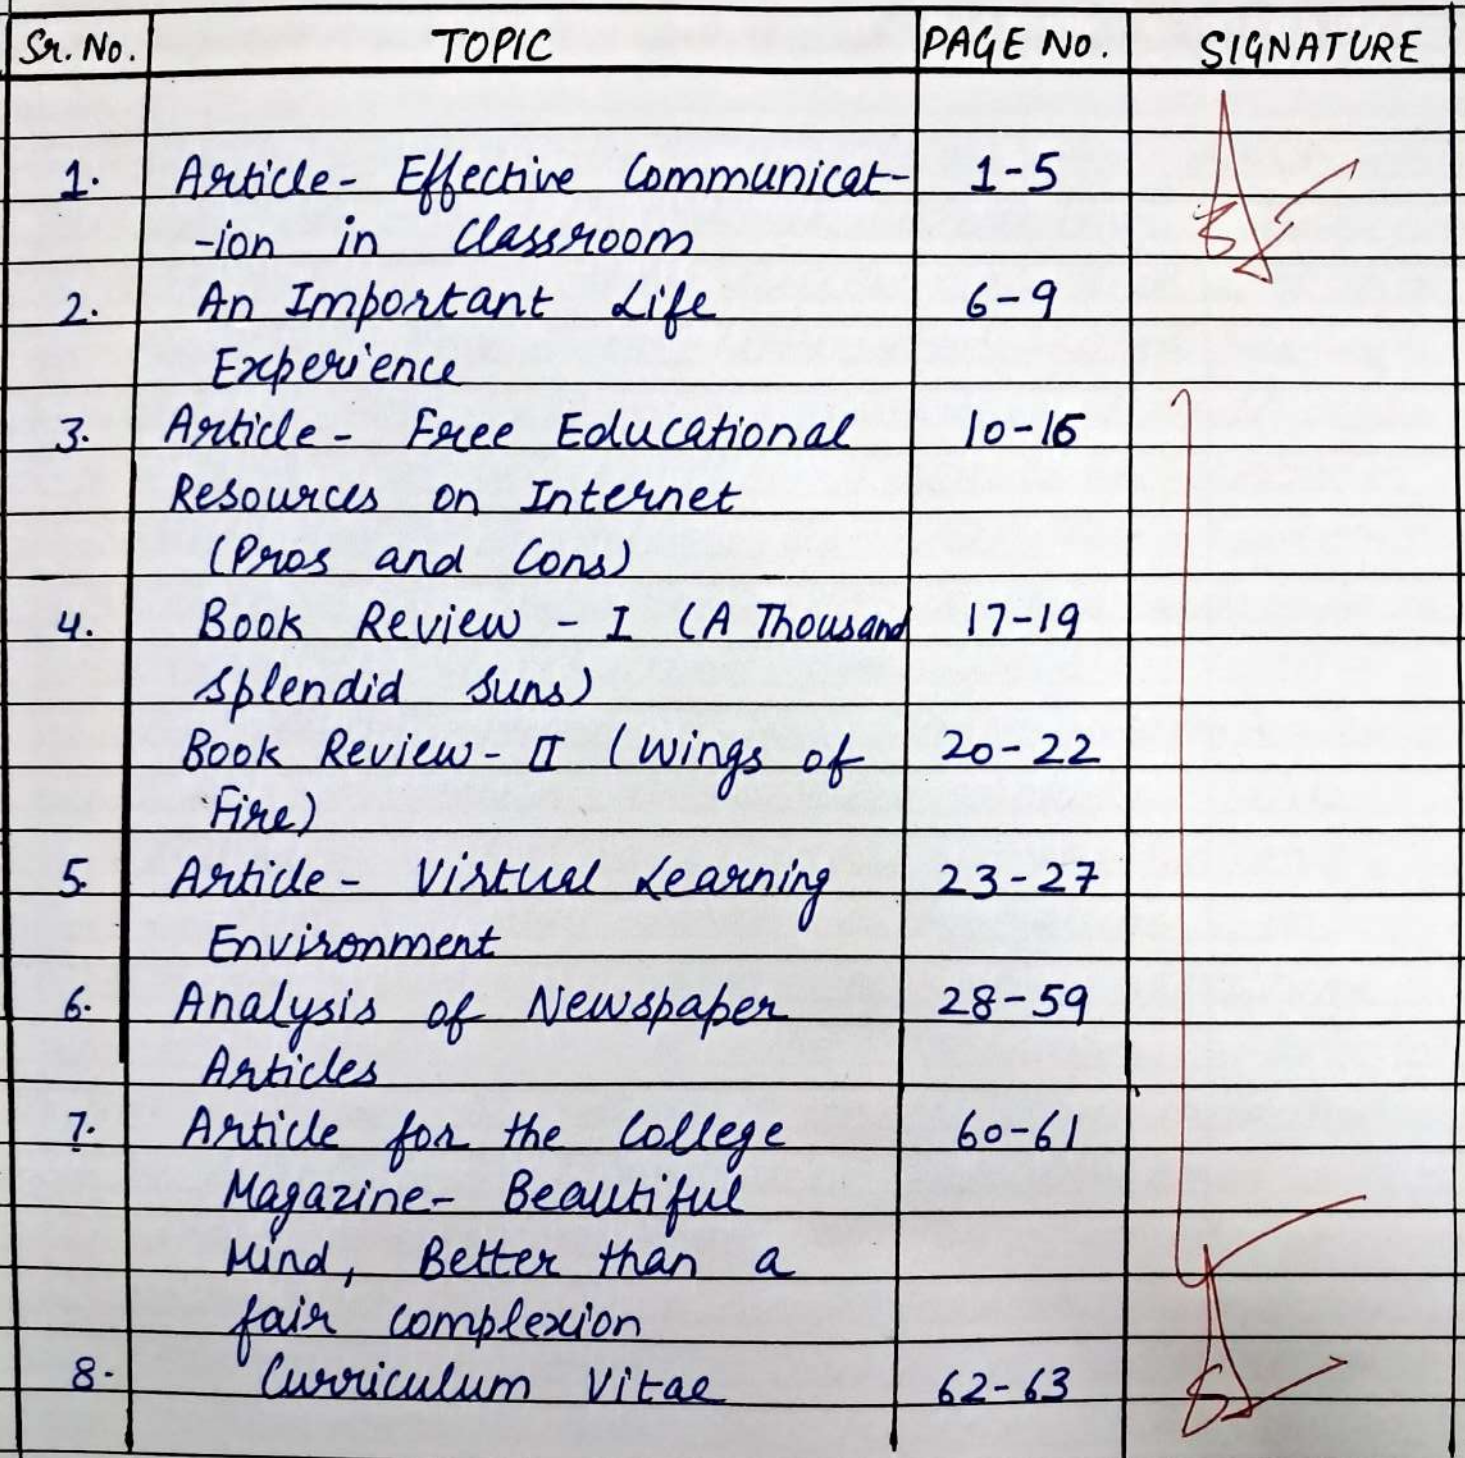 Sr. No. TOPIC PAGE No. SIGNATURE
1. Article- Effective Communicat- 1-5
-ion in Classroom
2. An Important Life 6-9
Experience
3. Article- Free Educational 10-16
Resources on Internet
(Pros and Cons)
4. Book Review - I (A Thousand 17-19
Splendid Suns)
Book Review- II (Wings of 20-22
Fire)
5. Article- Virtual Learning 23-27
Environment
6. Analysis of Newspaper 28-59
Articles
7. Article for the College 60-61
Magazine- Beautiful
Mind, Better than a
fair complexion
8. Curriculum Vitae 62-63